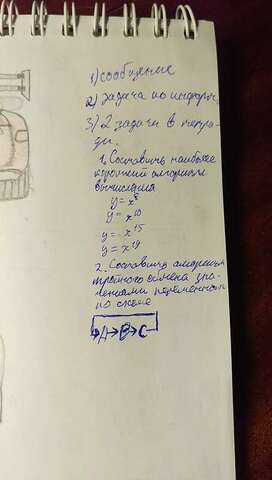 1) сообщение
2) задача по информ.
3) 2 задачи в тетра-
ди.
1. Составить наиболее
короткий алгоритм
вычисления
y = x⁸
y = x¹⁰
y = x¹⁵
y = x¹⁹
2. Составить алгоритм
тройного обмена зна-
чениями переменных
по схеме
→A→B→C